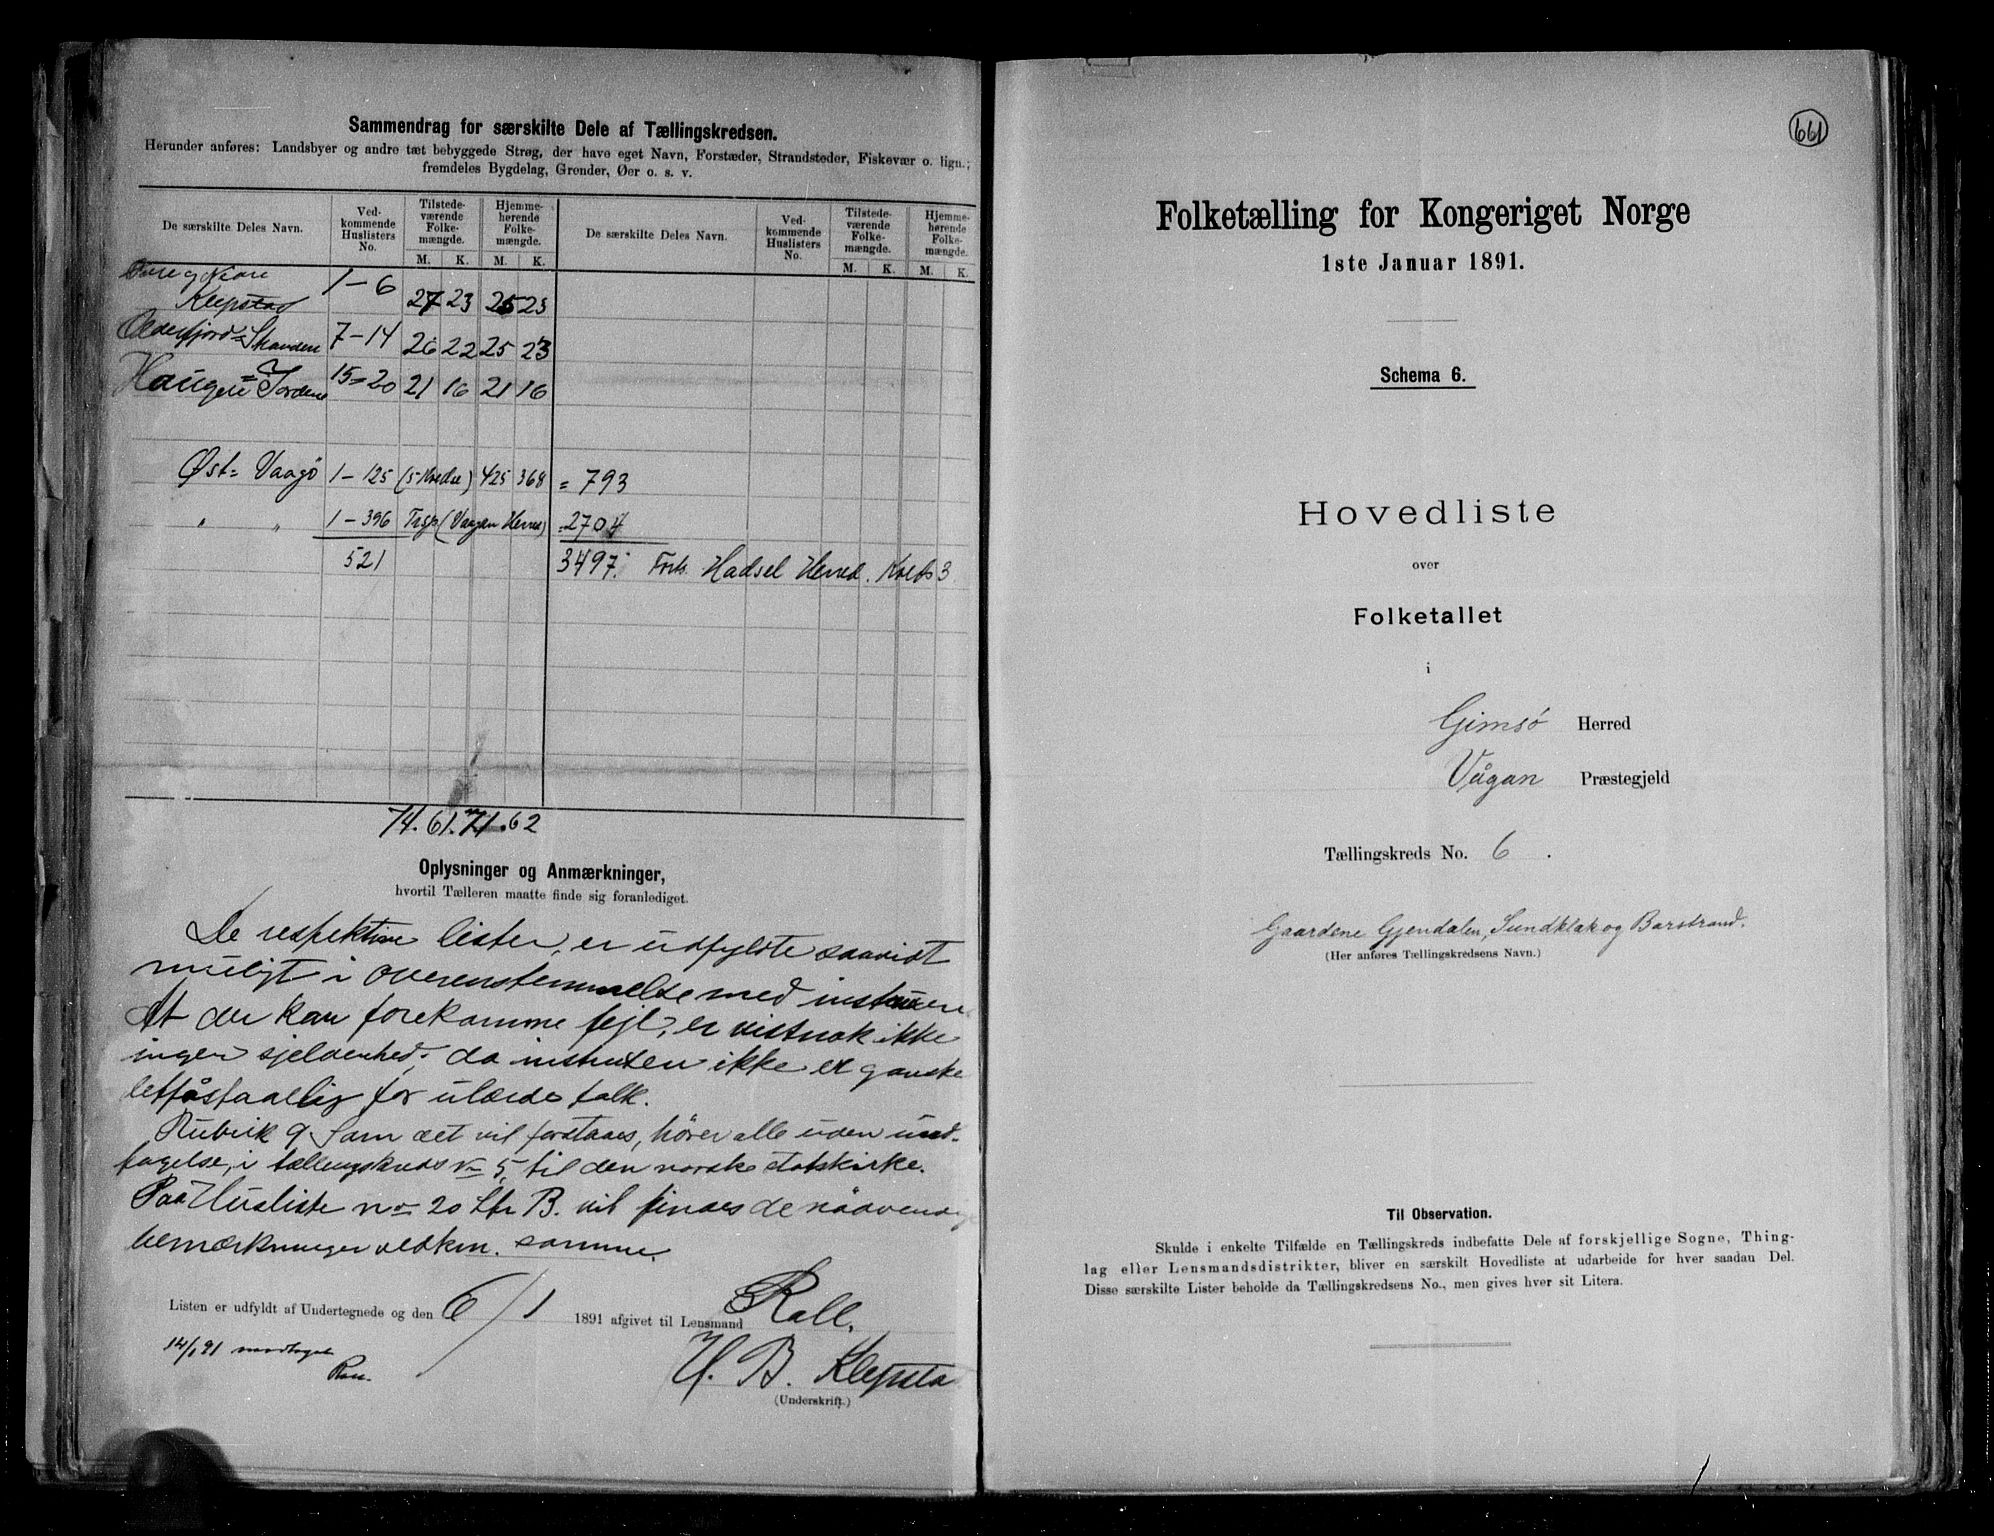 Sammendrag for særskilte Dele af Tællingskredsen.
Herunder anføres: Landsbyer og andre tæt bebyggede Strøg, der have eget Navn, Forstæder, Strandsteder, Fiskevær o. lign.;
fremdeles Bygdelag, Grender, Øer o. s. v.
De særskilte Deles Navn. Ved-kommende Huslisters No. Tilstede-værende Folke-mængde. Hjemme-hørende Folke-mængde. De særskilte Deles Navn. Ved-kommende Huslisters No. Tilstede-værende Folke-mængde. Hjemme-hørende Folke-mængde.
M. K. M. K. M. K. M. K.
Klepstad 1-6 27 23 25 23
Olderfjord = Stranden 7-14 26 22 25 23
Haugen = Jordene 15=20 21 16 21 16
Øst= Vaagö 1-125 (5 Kredse) 425 368 = 793
" " 1-396 Trsp (Vaagan Herred) =2704
521 3497. Forts. Hadsel Herred. Kreds 3
74. 61. 71. 62
Oplysninger og Anmærkninger,
hvortil Tælleren maatte finde sig foranlediget.
De respektive lister, er udfyldte saavidt
muligt i overenstemmelse med
At der kan forekomme fejl, er vistnok ikke
ingen sjeldenhed, da ikke er ganske
for ulærde folk.
Rubrik 9 Som det vil forstaaes, hører alle uden und-
tagelse, i tællingskreds No 5, til den norske statskirke.
Paa Husliste no 20 Ltr B. vil findes de nödvendige
bemærkninger vedkm. samme.
Listen er udfyldt af Undertegnede og den 6/1 1891 afgivet til Lensmand Rall.
14/1 91 modtaget
Rall.
H. B. Klepsta
(Underskrift.)
661
Folketælling for Kongeriget Norge
1ste Januar 1891.
Schema 6.
Hovedliste
over
Folketallet
i
Gimsö Herred
Vågan Præstegjeld
Tællingskreds No. 6.
Gaardene Gjendalen, Sundklak og Barstrand.
(Her anføres Tællingskredsens Navn.)
Til Observation.
Skulde i enkelte Tilfælde en Tællingskreds indbefatte Dele af forskjellige Sogne, Thing-
lag eller Lensmandsdistrikter, bliver en særskilt Hovedliste at udarbeide for hver saadan Del.
Disse særskilte Lister beholde da Tællingskredsens No., men gives hver sit Litera.